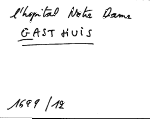 l'hopital Notre Dame
GASTHUIS
1699/12